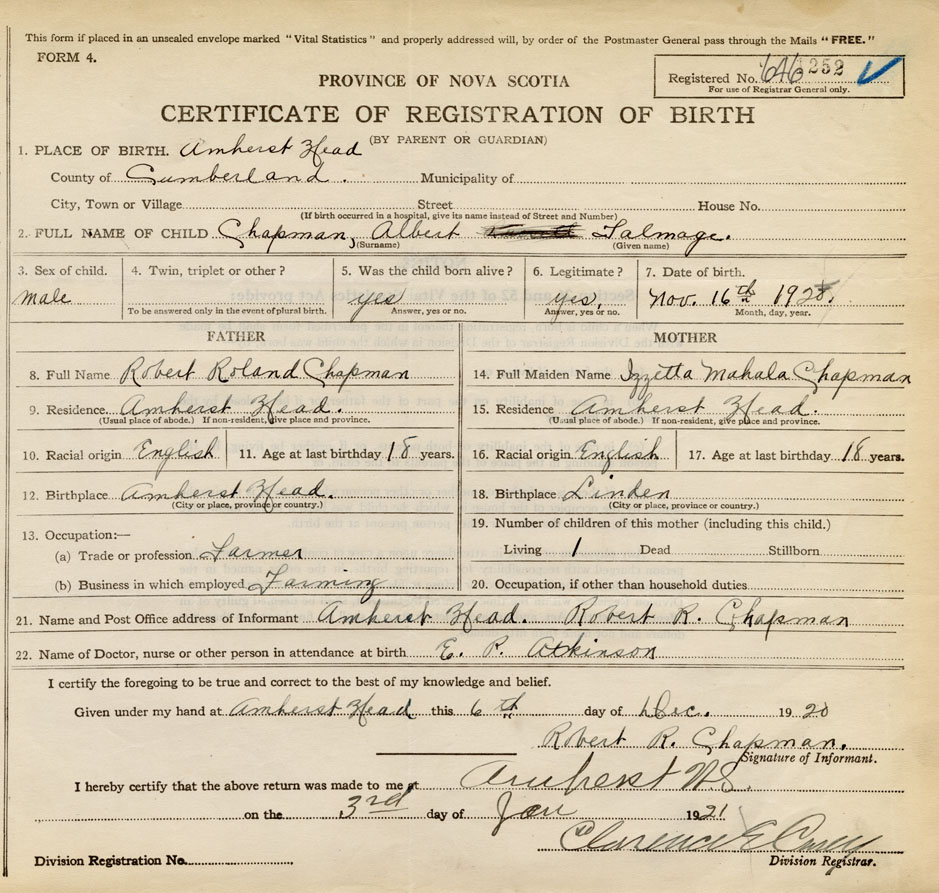 This form if placed in an unsealed envelope marked "Vital Statistics" and properly addressed will, by order of the Postmaster General pass through the Mails "FREE."
FORM 4.
PROVINCE OF NOVA SCOTIA
Registered No. 646 252
For use of Registrar General only.
CERTIFICATE OF REGISTRATION OF BIRTH
(BY PARENT OR GUARDIAN)
1. PLACE OF BIRTH. Amherst Head
County of Cumberland. Municipality of
City, Town or Village Street House No.
(If birth occurred in a hospital, give its name instead of Street and Number)
2. FULL NAME OF CHILD Chapman, Albert Talmage.
(Surname) (Given name)
3. Sex of child. 4. Twin, triplet or other? 5. Was the child born alive? 6. Legitimate? 7. Date of birth.
male yes yes. Nov. 16th
To be answered only in the event of plural birth. Answer, yes or no. Answer, yes or no. Month, day, year.
FATHER MOTHER
8. Full Name Robert Roland Chapman 14. Full Maiden Name Izzetta Mahala Chapman
9. Residence Amherst Head. 15. Residence Amherst Head.
(Usual place of abode.) If non-resident, give place and province. (Usual place of abode.) If non-resident, give place and province.
10. Racial origin English 11. Age at last birthday 18 years. 16. Racial origin English 17. Age at last birthday 18 years.
12. Birthplace Amherst Head. 18. Birthplace Linden
(City or place, province or country.) (City or place, province or country.)
13. Occupation:— 19. Number of children of this mother (including this child.)
(a) Trade or profession Farmer Living 1 Dead Stillborn
(b) Business in which employed Farming 20. Occupation, if other than household duties
21. Name and Post Office address of Informant Amherst Head. Robert R. Chapman
22. Name of Doctor, nurse or other person in attendance at birth E. P. Atkinson
I certify the foregoing to be true and correct to the best of my knowledge and belief.
Given under my hand at Amherst Head this 6th day of Dec. 1920
Robert R. Chapman.
Signature of Informant.
I hereby certify that the above return was made to me at Amherst N.S.
on the 3rd day of Jan 1921
Clarence E
Division Registration No. Division Registrar.